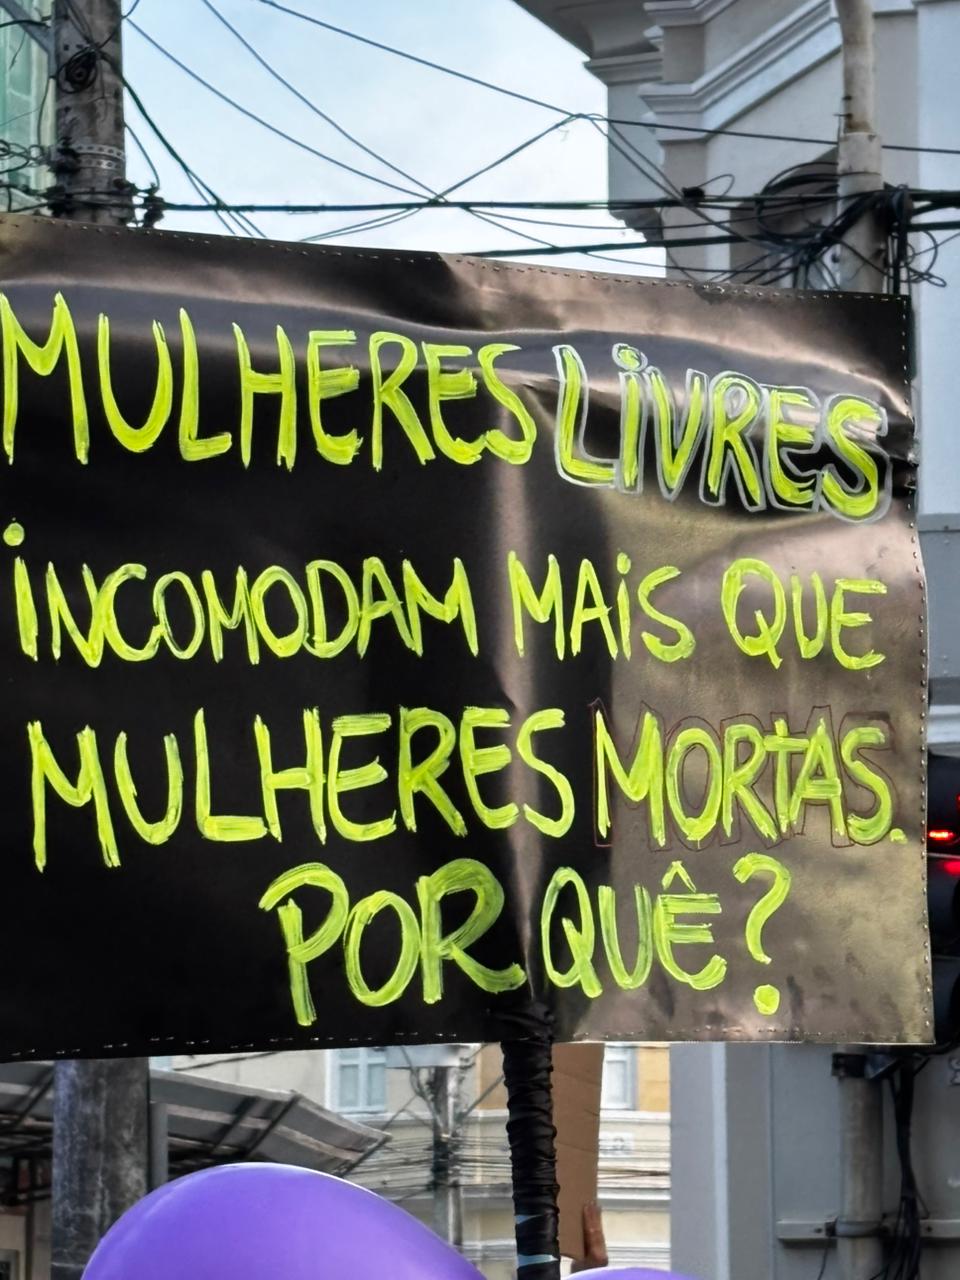 MULHERES LIVRES
INCOMODAM MAIS QUE
MULHERES MORTAS.
POR QUÊ?